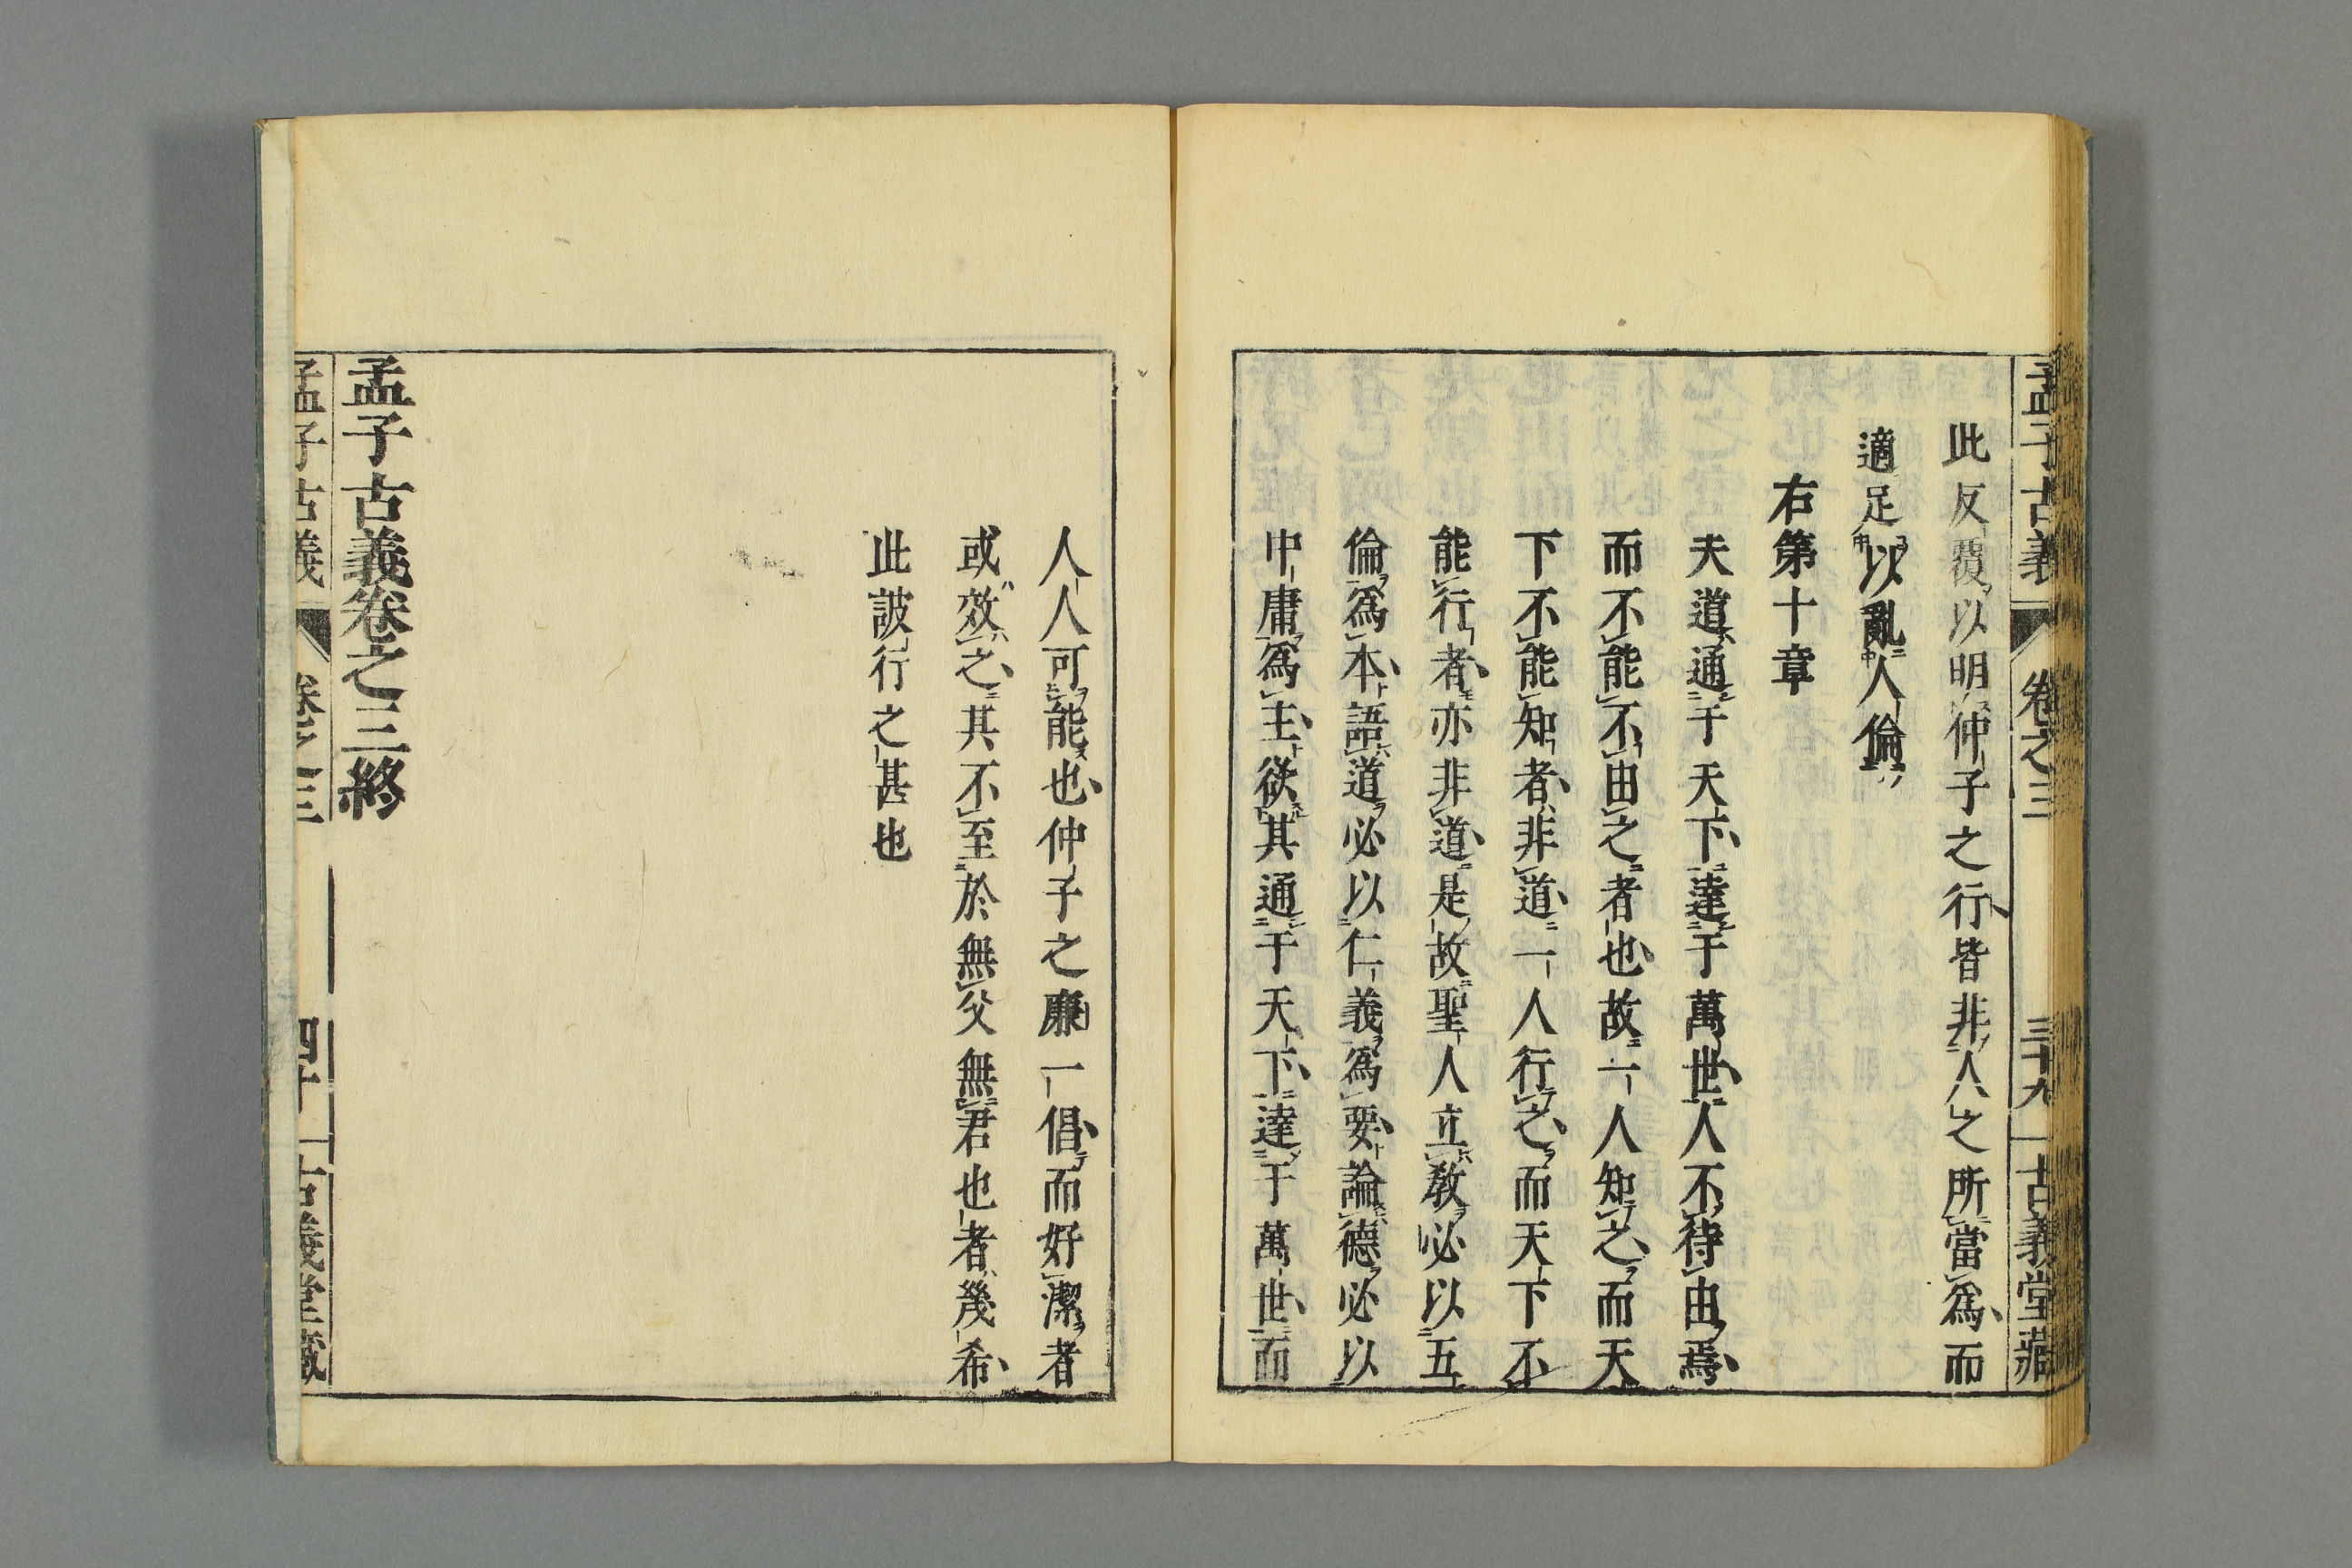 孟子古義 卷之三 三十九 古義堂藏
此反覆以明仲子之行皆非人之所當爲而
適足以亂人倫
右第十章
夫道通于天下達于萬世人不待由焉
而不能不由之者也故一人知之而天
下不能知者非道一人行之而天下不
能行者亦非道是故聖人立教必以五
倫爲本語道必以仁義爲要論德必以
中庸爲主欲其通于天下達于萬世而
人人可能也仲子之廉一倡而好潔者
或效之其不至於無父無君也者幾希
此詖行之甚也
孟子古義卷之三終
孟子古義 卷之三 四十 古義堂藏